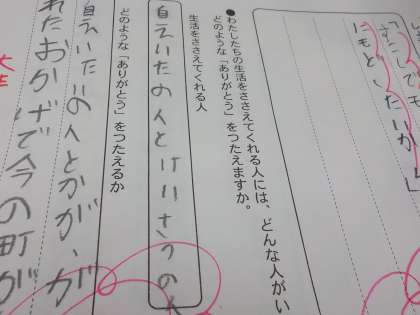 にもどしたいが」
●わたしたちの生活をささえてくれる人には、どんな人がい
どのような「ありがとう」をつたえますか。
生活をささえてくれる人
自えいたの人とけいさつの人
どのような「ありがとう」をつたえるか
自えいたいの人とかが、が
れたおかげで今の町が